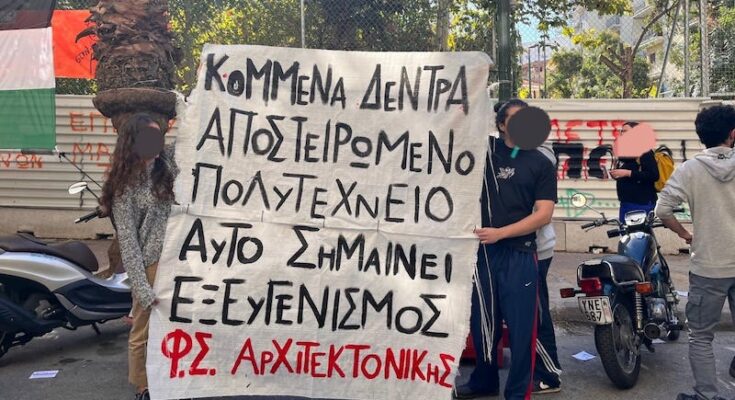 ΚΟΜΜΕΝΑ ΔΕΝΤΡΑ
ΑΠΟΣΤΕΙΡΩΜΕΝΟ
ΠΟΛΥΤΕΧΝΕΙΟ
ΑΥΤΟ ΣΗΜΑΙΝΕΙ
ΕΞΕΥΓΕΝΙΣΜΟΣ
Φ.Σ. ΑΡΧΙΤΕΚΤΟΝΙΚΗΣ
ΥΝΕ